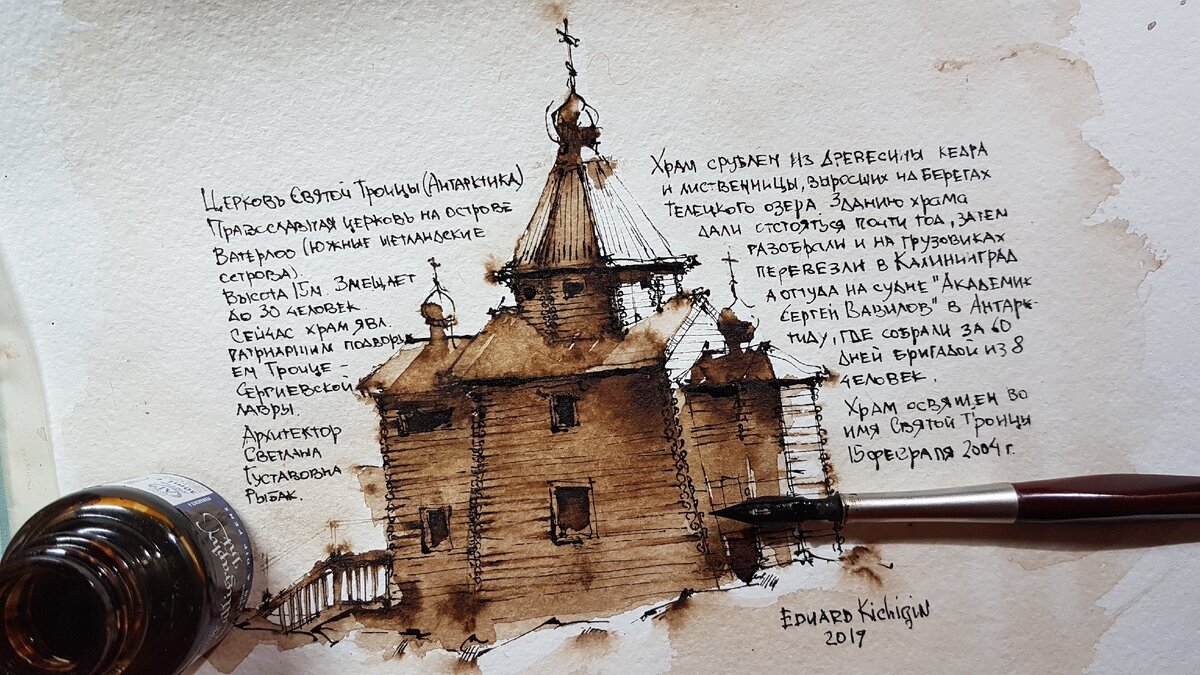 Церковь Святой Троицы (Антарктика)
Православная церковь на острове
Ватерлоо (Южные шетландские
острова).
Высота 15м. Вмещает
до 30 человек
Сейчас храм явл.
патриаршим подворь
ем Троице-
Сергиевской
лавры.
Архитектор
Светлана
Густавовна
Рыбак.
Храм срублен из древесины кедра
и лиственницы, выросших на берегах
Телецкого озера. Зданию храма
дали отстояться почти год, затем
разобрали и на грузовиках
перевезли в Калининград
а оттуда на судне "Академик
Сергей Вавилов" в Антарк-
тиду, где собрали за 60
дней бригадой из 8
человек.
Храм освящен во
имя Святой Троицы
15 февраля 2004 г.
Eduard Kichigin
2019